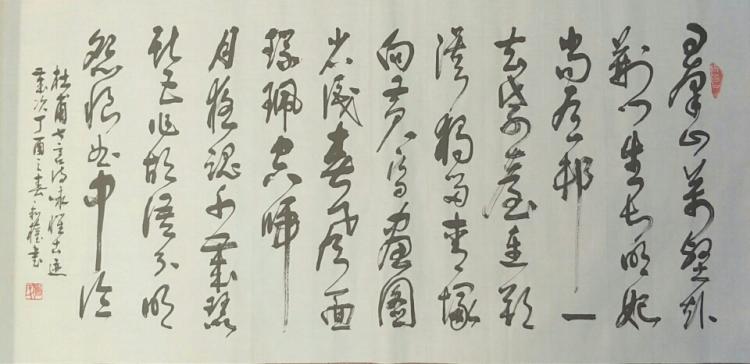 群山萬壑赴
荆门生长明妃
尚有邨一
去紫臺連朔
漠獨留青塚
向黄昏畫圖
省識春風面
環珮空归
月夜魂千載琵
琶作胡語分明
怨恨曲中论
杜甫七言诗咏懷古迹
歲次丁酉之春 書